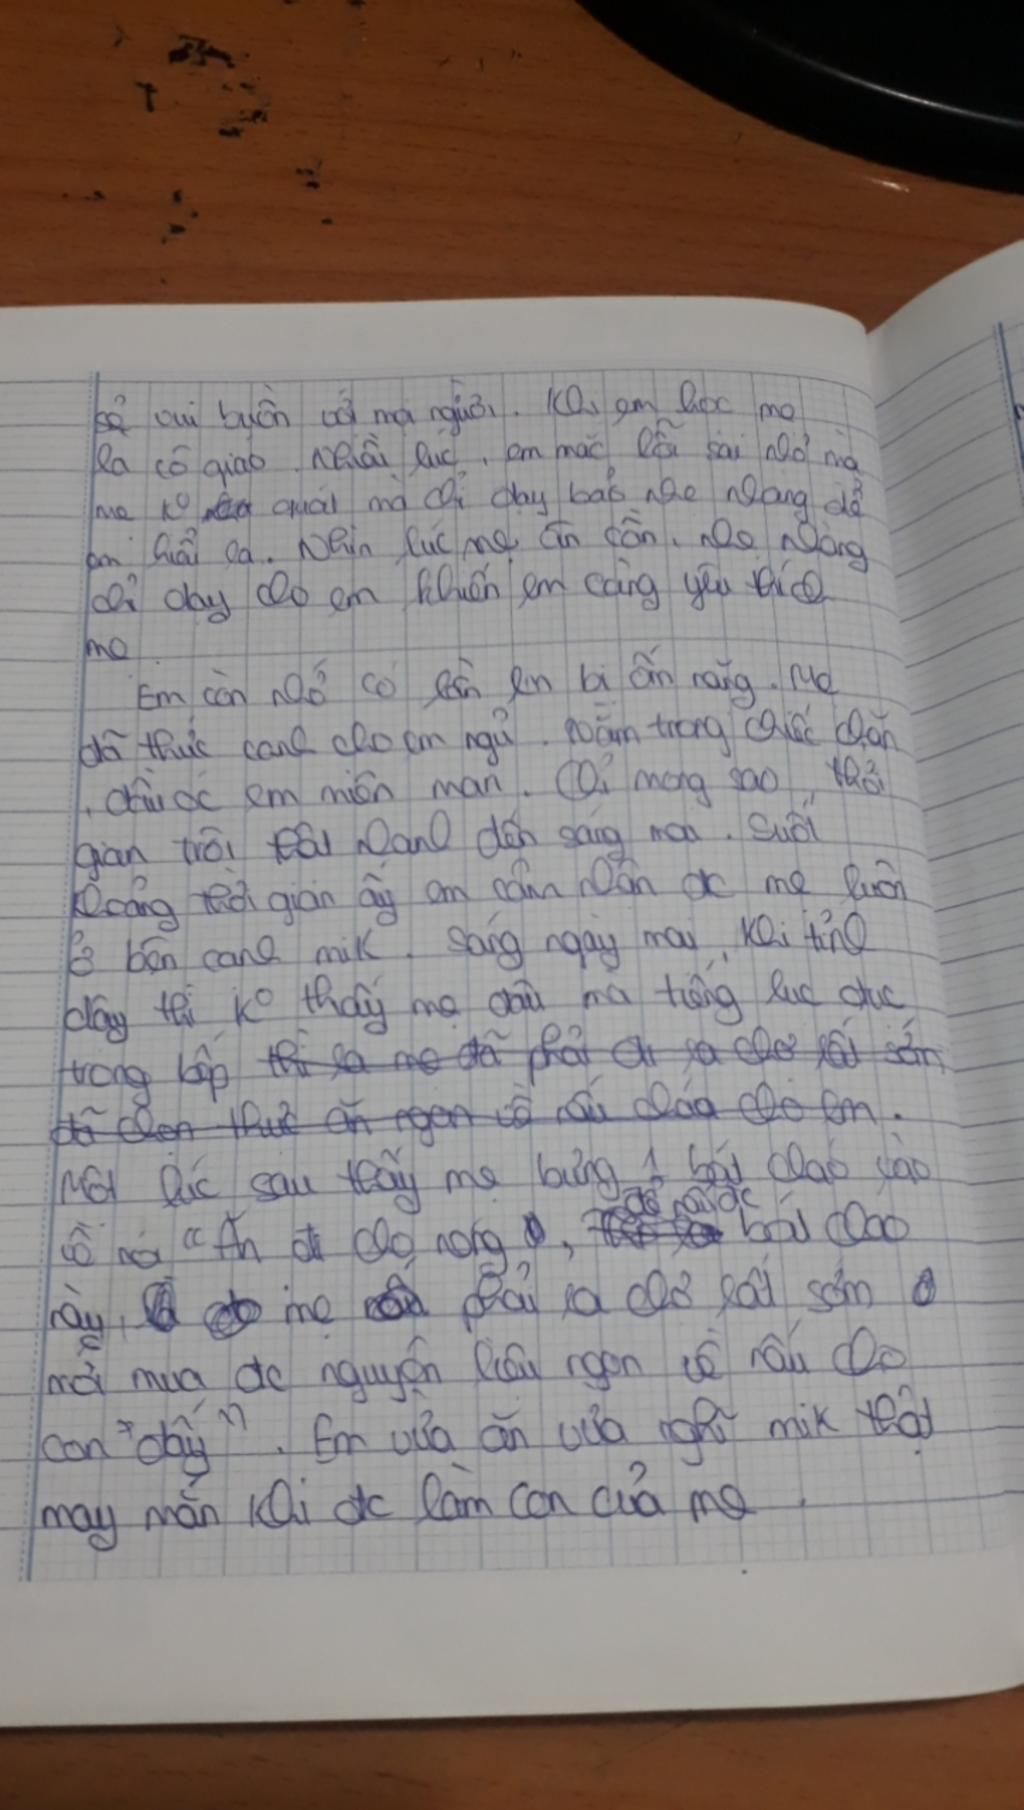 sẻ vui buồn với mọi người. Khi em học mẹ
là cô giáo. Nhiều lúc, em mắc lỗi sai nhỏ mà
mẹ k⁰ quát mà chỉ dạy bảo nhẹ nhàng để
em hiểu ra. Nhìn lúc mẹ ân cần, nhẹ nhàng
chỉ dạy cho em khiến em càng yêu thích
mẹ
Em còn nhớ có lần em bị ốm nặng. Mẹ
đã thức canh cho em ngủ. Nằm trong chiếc chăn
, đầu óc em miên man. Chỉ mong sao, thời
gian trôi thật nhanh đến sáng mai. Suốt
khoảng thời gian ấy em cảm nhận đc mẹ luôn
ở bên cạnh mik. Sáng ngày mai, khi tỉnh
dậy thì k⁰ thấy mẹ đâu mà tiếng lục đục
trong bếp thì ra mẹ đã phải đi ra chợ rất sớm
đã chọn thức ăn ngon về nấu cháo cho em.
Một lúc sau thấy mẹ bưng 1 bát cháo vào
và nói "Ăn đi cho nóng, để nấu đc bát cháo
này, mẹ phải ra chợ rất sớm
mới mua đc nguyên liệu ngon về nấu cho
con đấy". Em vừa ăn vừa nghĩ mik thật
may mắn khi đc làm con của mẹ.